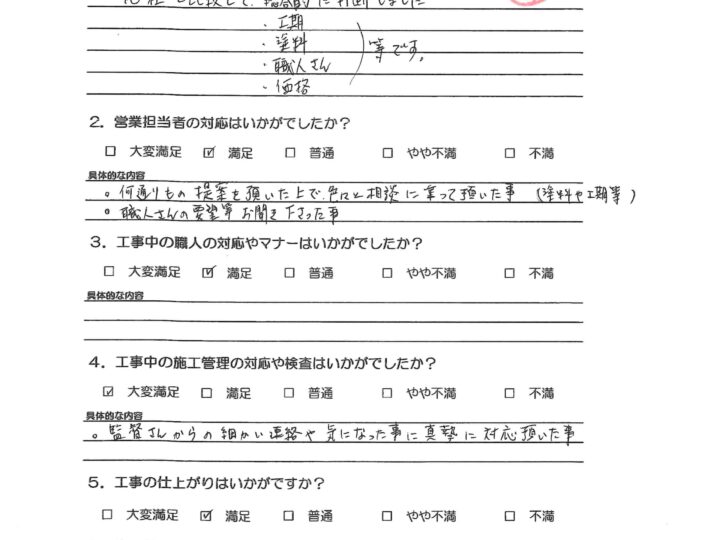 比較して、
・工期
・塗料
・職人さん
・価格
等です。
2. 営業担当者の対応はいかがでしたか?
□ 大変満足 ☑ 満足 □ 普通 □ やや不満 □ 不満
具体的な内容
○ 何通りもの提案を頂いた上で、色々と相談に乗って頂いた事 (塗料や工期等)
○ 職人さんの要望等お聞き下さった事
3. 工事中の職人の対応やマナーはいかがでしたか?
□ 大変満足 ☑ 満足 □ 普通 □ やや不満 □ 不満
具体的な内容
4. 工事中の施工管理の対応や検査はいかがでしたか?
☑ 大変満足 □ 満足 □ 普通 □ やや不満 □ 不満
具体的な内容
○ 監督さんからの細かい連絡や気になった事に真摯に対応頂いた事
5. 工事の仕上がりはいかがですか?
□ 大変満足 ☑ 満足 □ 普通 □ やや不満 □ 不満